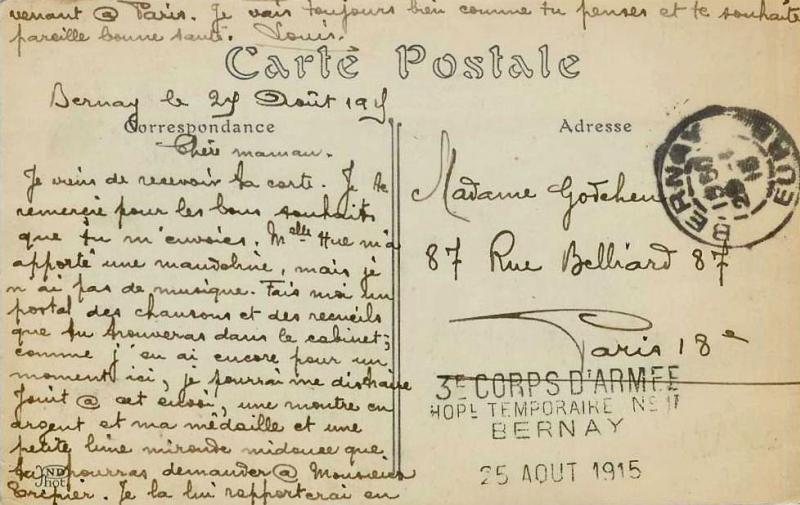 venant @ Paris. Je vais toujours bien comme tu penses et te souhaite
pareille bonne santé. Louis.
Carte Postale
Bernay le 25 Août 1915
Correspondance
Chère maman.
Je viens de recevoir ta carte. Je te
remercie pour les bons souhaits
que tu m'envoies. Melle Hue m'a
apporté une mandoline, mais je
n'ai pas de musique. Fais moi un
postal des chansons et des recueils
que tu trouveras dans le cabinet;
comme j'en ai encore pour un
moment ici, je pourrai me distraire
Joint @ cet envoi, une montre en
argent et ma médaille et une
petite lime mironde midouce que
tu pourras demander @ Monsieur
Crépier. Je la lui rapporterai en
ND
Phot.
Adresse
Madame Godcheu
87 Rue Belliard 87
Paris 18e
BERNAY
EURE
3E CORPS D'ARMEE
HOPL TEMPORAIRE No 17
BERNAY
25 AOUT 1915